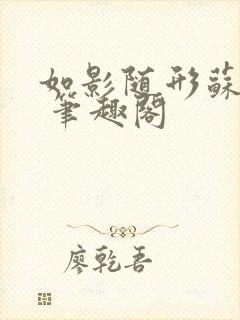 如影随形蘇
筆趣閣
廖乾吾